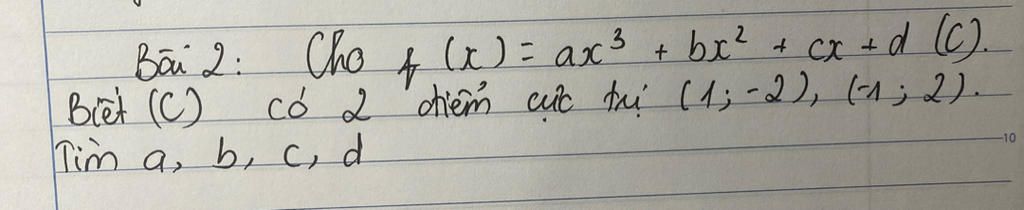 Bài 2: Cho f(x) = ax³ + bx² + cx + d (C).
Biết (C) có 2 điểm cực trị (1; -2), (-1; 2).
Tìm a, b, c, d
10